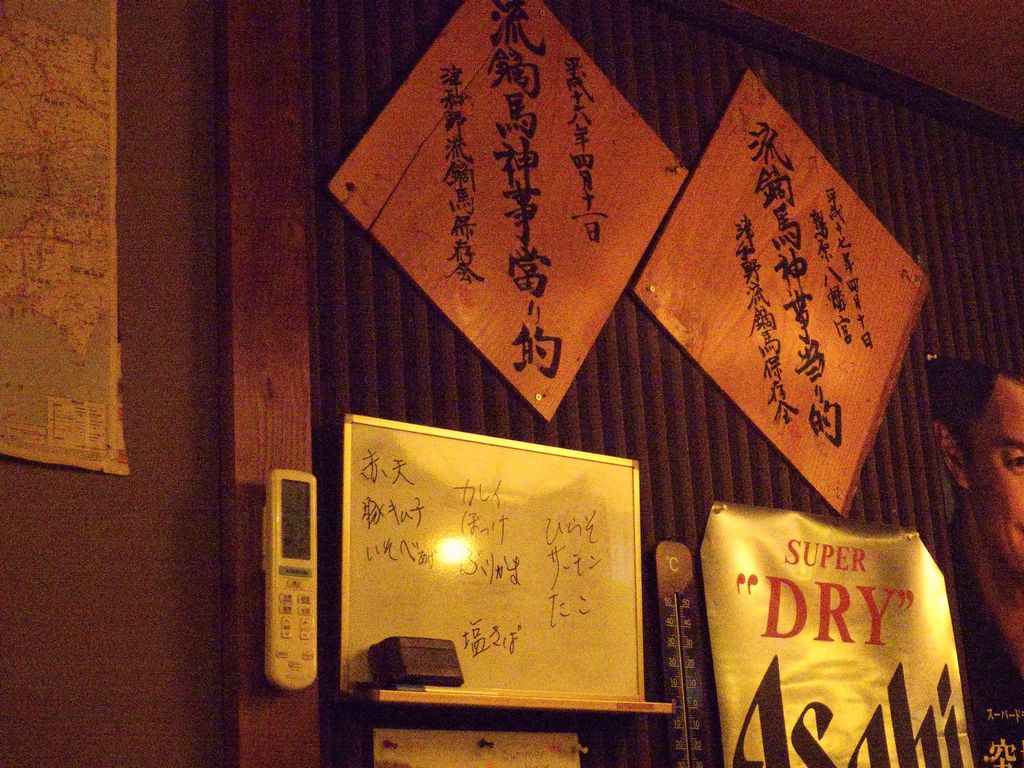 平成十六年四月十一日
流鏑馬神事當り的
津和野流鏑馬保存会
平成十七年四月十日
鷲原八幡宮
流鏑馬神事当り的
津和野流鏑馬保存会
赤天
豚キムチ
いそべあげ
カレイ
ほっけ
ぶりかま
塩さば
ひらそ
サーモン
たこ
℃
SUPER
"DRY"
Asahi
スーパードラ
空